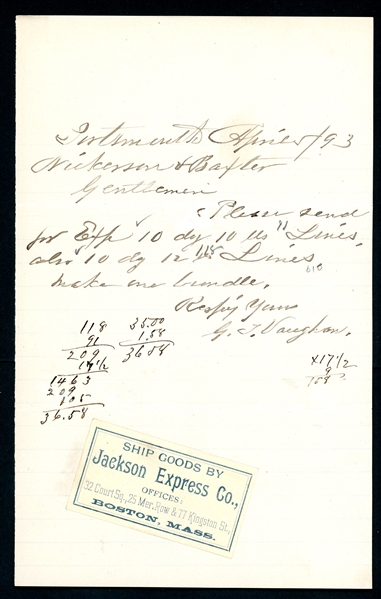 Portsmouth April /93
Nickerson & Baxter
Gentlemen
Please send
for Exp 10 dz 10 lbs 91 Lines,
also 10 dz 12 lbs 118 Lines,
make one bundle.
Respy Yours
G. T. Vaughan.
118
91
209
17 1/2
1463
209
105
36.58
35.00
1.58
36.58
17 1/2
9
158
SHIP GOODS BY
Jackson Express Co.,
OFFICES:
32 Court Sq., 25 Mer. Row & 77 Kingston St.,
BOSTON, MASS.